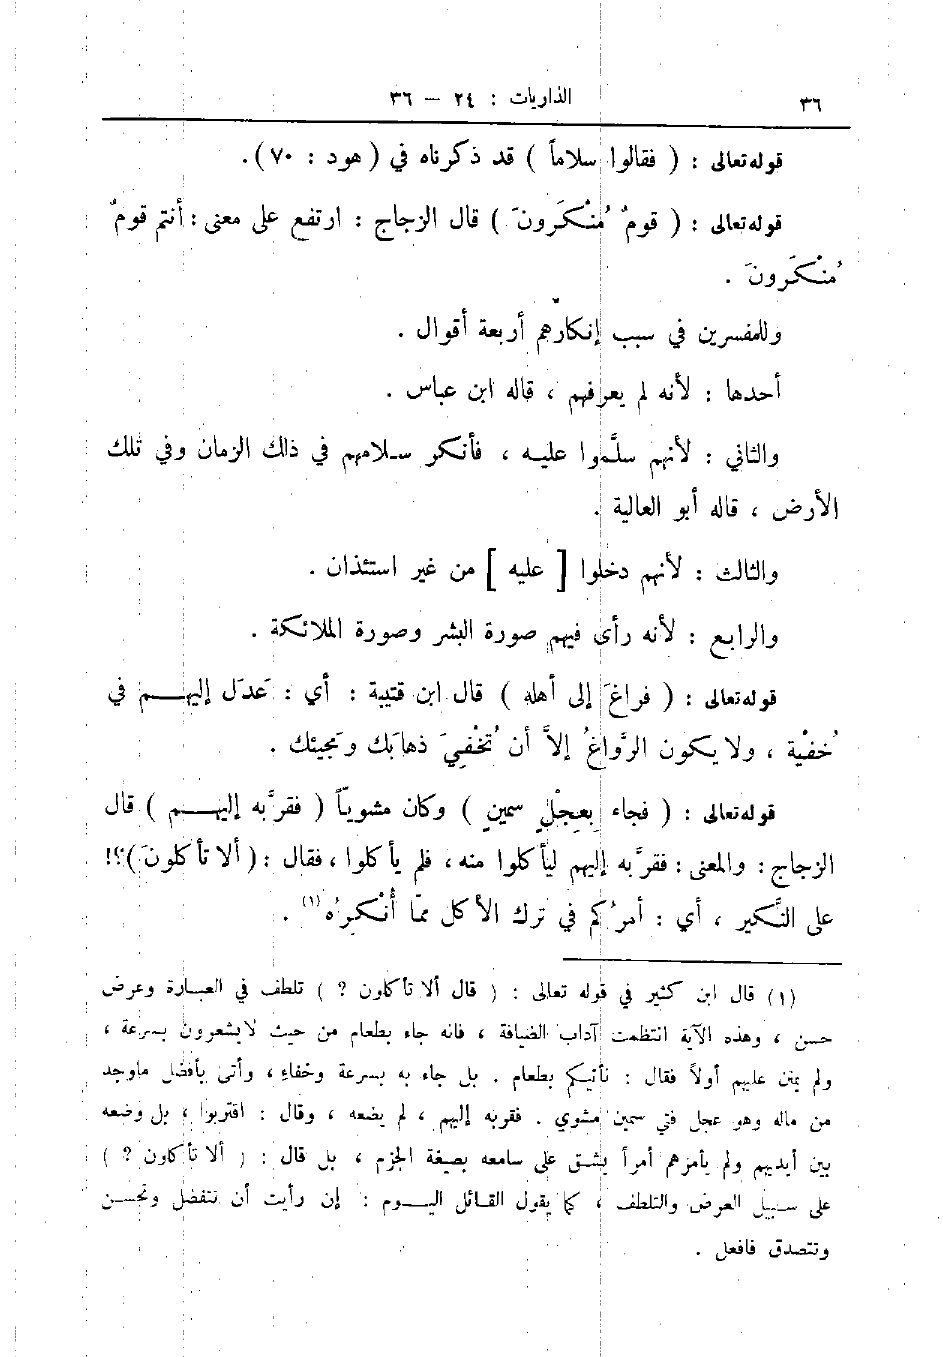 ٣٦
الذاريات : ٢٤ — ٣٦
قوله تعالى : ( فقالوا سلاماً ) قد ذكرناه في ( هود : ٧٠ ) .
قوله تعالى : ( قومٌ مُنْكَرونَ ) قال الزجاج : ارتفع على معنى : أنتم قومٌ
مُنْكَرونَ .
وللمفسرين في سبب إنكارهم أربعة أقوال .
أحدها : لأنه لم يعرفهم ، قاله ابن عباس .
والثاني : لأنهم سلَّموا عليه ، فأنكر سلامهم في ذلك الزمان وفي تلك
الأرض ، قاله أبو العالية .
والثالث : لأنهم دخلوا [ عليه ] من غير استئذان .
والرابع : لأنه رأى فيهم صورة البشر وصورة الملائكة .
قوله تعالى : ( فراغَ إلى أهله ) قال ابن قتيبة : أي : عَدَل إليهم في
خُفْية ، ولا يكون الرَّواغُ إلاَّ أن تُخْفِيَ ذهابَك ومَجيئك .
قوله تعالى : ( فجاء بعِجْلٍ سمينٍ ) وكان مشويّاً ( فقرَّبه إليهم ) قال
الزجاج : والمعنى : فقرَّبه إليهم ليأكلوا منه ، فلم يأكلوا ، فقال : ( ألا تأكلونَ ) ؟!
على النَّكير ، أي : أمرُكم في ترك الأكل ممّا أُنْكِرُه (١) .
(١) قال ابن كثير في قوله تعالى : ( قال ألا تأكلون ؟ ) تلطف في العبارة وعرض
حسن ، وهذه الآية انتظمت آداب الضيافة ، فانه جاء بطعام من حيث لا يشعرون بسرعة ،
ولم يمتن عليهم أولاً فقال : نأتيكم بطعام . بل جاء به بسرعة وخفاء ، وأتى بأفضل ماوجد
من ماله وهو عجل فتي سمين مشوي . فقربه إليهم ، لم يضعه ، وقال : اقتربوا ، بل وضعه
بين أيديهم ولم يأمرهم أمراً يشق على سامعه بصيغة الجزم ، بل قال : ( ألا تأكلون ؟ )
على سبيل العرض والتلطف ، كما يقول القائل اليوم : إن رأيت أن تتفضل وتحسن
وتتصدق فافعل .